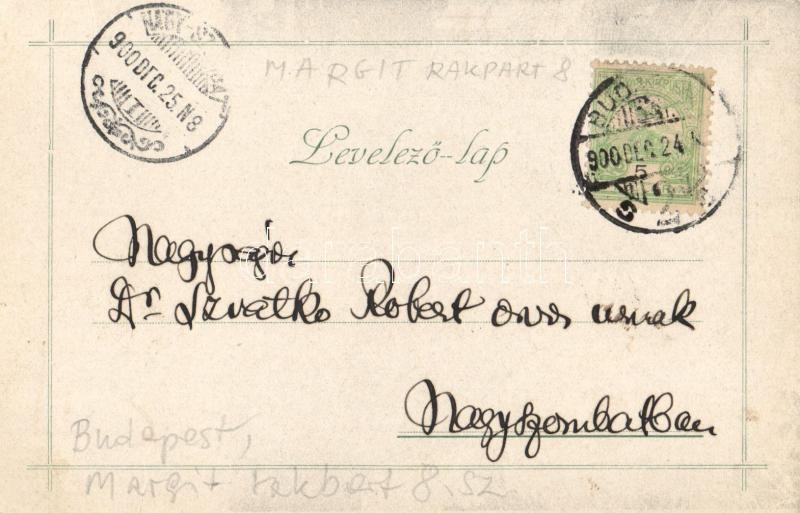 900 DEC. 25. N 8
MARGIT RAKPART 8
BUD
900 DEC. 24
5
Levelező-lap
Nagysága
Dr Szvatko Robert orvos urnak
darabanth
Nagyszombatban
Budapest,
Margit rakbert 8. sz